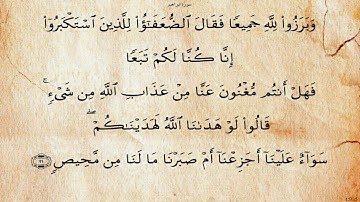 سورة إبراهيم
وَبَرَزُوا۟ لِلَّهِ جَمِيعًا فَقَالَ ٱلضُّعَفَـٰٓؤُا۟ لِلَّذِينَ ٱسْتَكْبَرُوٓا۟
إِنَّا كُنَّا لَكُمْ تَبَعًا
فَهَلْ أَنتُم مُّغْنُونَ عَنَّا مِنْ عَذَابِ ٱللَّهِ مِن شَىْءٍ ۚ
قَالُوا۟ لَوْ هَدَىٰنَا ٱللَّهُ لَهَدَيْنَـٰكُمْ ۖ
سَوَآءٌ عَلَيْنَآ أَجَزِعْنَآ أَمْ صَبَرْنَا مَا لَنَا مِن مَّحِيصٍ ٢١